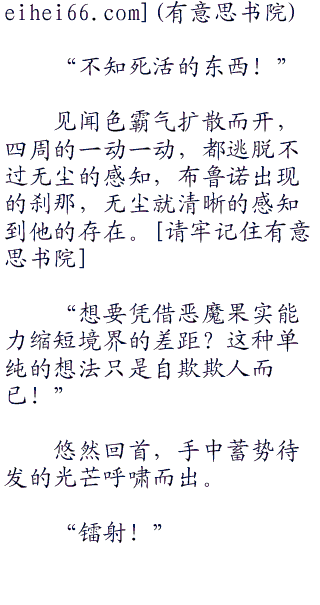 eihei66.com](有意思书院)
“不知死活的东西！”
见闻色霸气扩散而开，
四周的一动一动，都逃脱不
过无尘的感知，布鲁诺出现
的刹那，无尘就清晰的感知
到他的存在。[请牢记住有意
思书院]
“想要凭借恶魔果实能
力缩短境界的差距？这种单
纯的想法只是自欺欺人而
已！”
悠然回首，手中蓄势待
发的光芒呼啸而出。
“镭射！”